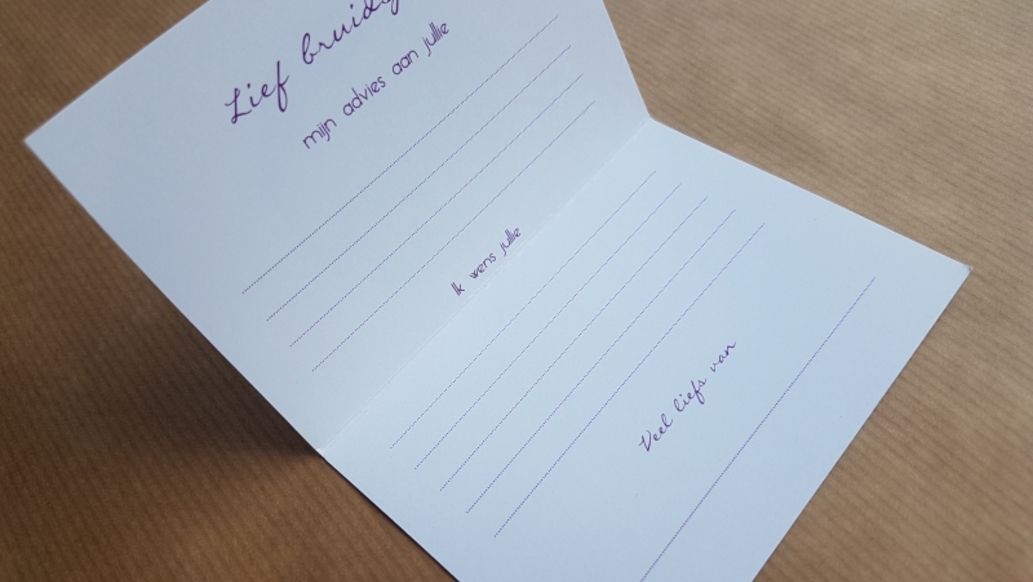 Lief
mijn advies aan jullie
Ik wens jullie
Veel liefs van